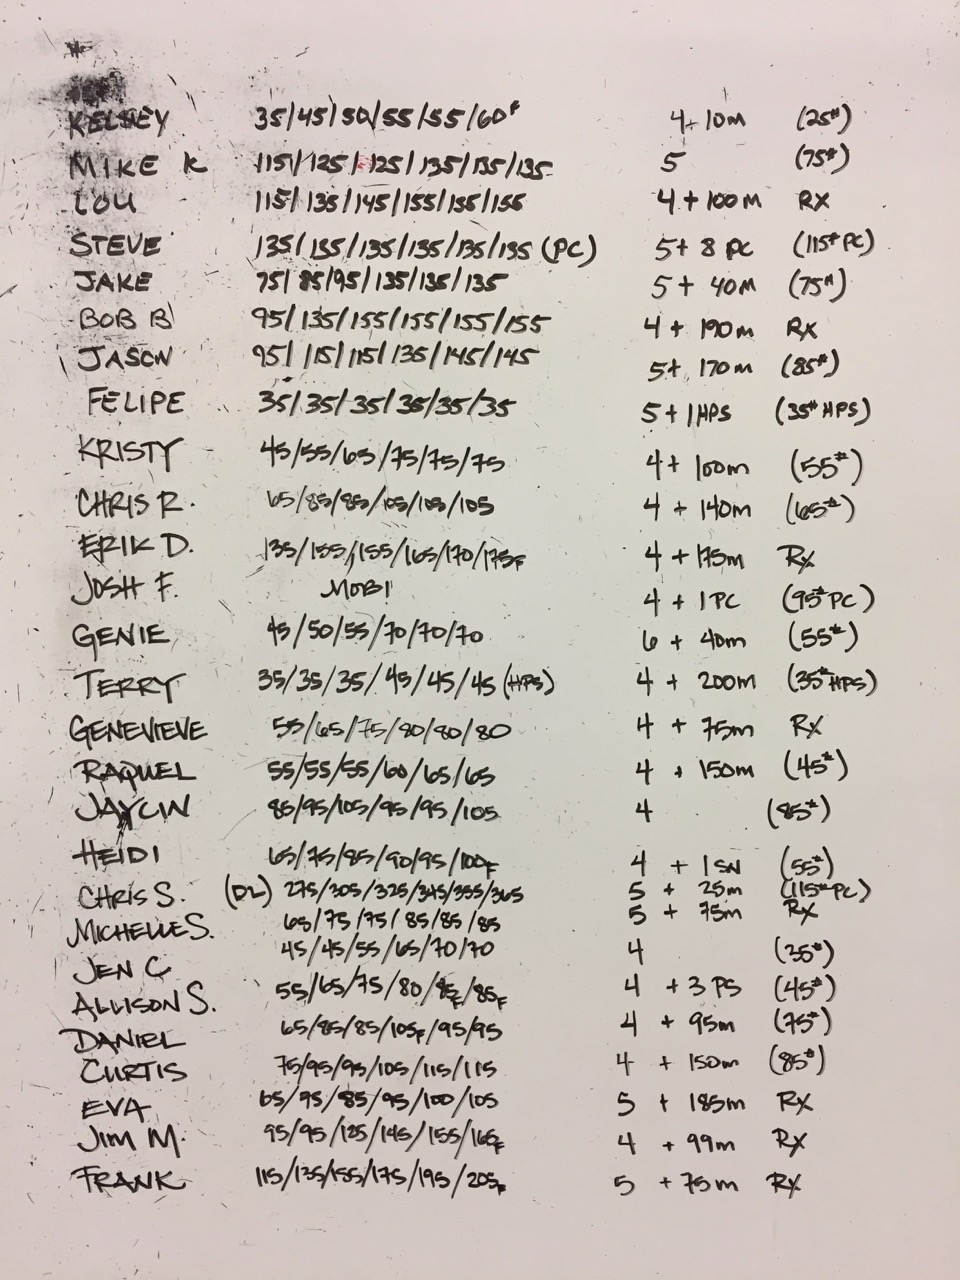 KELSEY 35/45/50/55/55/60# 4+10m (25#)
MIKE K 115/125/125/135/135/135 5 (75#)
LOU 115/135/145/155/155/155 4+100m RX
STEVE 135/155/135/135/135/135 (PC) 5+ 8 PC (115# PC)
JAKE 75/85/95/135/135/135 5+ 40m (75#)
BOB B 95/135/155/155/155/155 4 + 190m RX
JASON 95/115/115/135/145/145 5+ 170m (85#)
FELIPE 35/35/35/35/35/35 5+1HPS (35# HPS)
KRISTY 45/55/65/75/75/75 4+ 100m (55#)
CHRIS R. 65/85/85/105/105/105 4 + 140m (65#)
ERIK D. 135/155/155/165/170/175F 4 +175m Rx
JOSH F. MOBI 4 + 1 PC (95# PC)
GENIE 45/50/55/70/70/70 6 + 40m (55#)
TERRY 35/35/35/45/45/45 (HPS) 4 + 200m (35# HPS)
GENEVIEVE 55/65/75/80/80/80 4 + 75m Rx
RAQUEL 55/55/55/60/65/65 4 + 150m (45#)
JAYCIN 85/95/105/95/95/105 4 (85#)
HEIDI 65/75/85/90/95/100F 4 + 1 SN (55#)
CHRIS S. (DL) 275/305/325/345/355/365 5 + 25m (115# PC)
MICHELLE S. 65/75/75/85/85/85 5 + 75m Rx
JEN C 45/45/55/65/70/70 4 (35#)
ALLISON S. 55/65/75/80/85F/85F 4 +3 PS (45#)
DANIEL 65/85/85/105F/95/95 4 + 95m (75#)
CURTIS 75/95/95/105/115/115 4 + 150m (85#)
EVA 65/75/85/95/100/105 5 + 185m Rx
JIM M. 95/95/125/145/155/165F 4 +99m Rx
FRANK 115/135/155/175/195/205F 5 +75m Rx